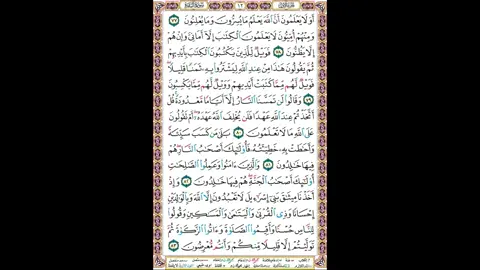 أَوَلَا يَعْلَمُونَ أَنَّ ٱللَّهَ يَعْلَمُ مَا يُسِرُّونَ وَمَا يُعْلِنُونَ ٧٧
وَمِنْهُمْ أُمِّيُّونَ لَا يَعْلَمُونَ ٱلْكِتَٰبَ إِلَّآ أَمَانِىَّ وَإِنْ هُمْ
إِلَّا يَظُنُّونَ ٧٨ فَوَيْلٌ لِّلَّذِينَ يَكْتُبُونَ ٱلْكِتَٰبَ بِأَيْدِيهِمْ
ثُمَّ يَقُولُونَ هَٰذَا مِنْ عِندِ ٱللَّهِ لِيَشْتَرُوا۟ بِهِۦ ثَمَنًا قَلِيلًا
فَوَيْلٌ لَّهُم مِّمَّا كَتَبَتْ أَيْدِيهِمْ وَوَيْلٌ لَّهُم مِّمَّا يَكْسِبُونَ
٧٩ وَقَالُوا۟ لَن تَمَسَّنَا ٱلنَّارُ إِلَّآ أَيَّامًا مَّعْدُودَةً قُلْ
أَتَّخَذْتُمْ عِندَ ٱللَّهِ عَهْدًا فَلَن يُخْلِفَ ٱللَّهُ عَهْدَهُۥٓ أَمْ تَقُولُونَ
عَلَى ٱللَّهِ مَا لَا تَعْلَمُونَ ٨٠ بَلَىٰ مَن كَسَبَ سَيِّئَةً
وَأَحَٰطَتْ بِهِۦ خَطِيٓـَٔتُهُۥ فَأُو۟لَٰٓئِكَ أَصْحَٰبُ ٱلنَّارِ هُمْ
فِيهَا خَٰلِدُونَ ٨١ وَٱلَّذِينَ ءَامَنُوا۟ وَعَمِلُوا۟ ٱلصَّٰلِحَٰتِ
أُو۟لَٰٓئِكَ أَصْحَٰبُ ٱلْجَنَّةِ هُمْ فِيهَا خَٰلِدُونَ ٨٢ وَإِذْ
أَخَذْنَا مِيثَٰقَ بَنِىٓ إِسْرَٰٓءِيلَ لَا تَعْبُدُونَ إِلَّا ٱللَّهَ وَبِٱلْوَٰلِدَيْنِ
إِحْسَانًا وَذِى ٱلْقُرْبَىٰ وَٱلْيَتَٰمَىٰ وَٱلْمَسَٰكِينِ وَقُولُوا۟
لِلنَّاسِ حُسْنًا وَأَقِيمُوا۟ ٱلصَّلَوٰةَ وَءَاتُوا۟ ٱلزَّكَوٰةَ ثُمَّ
تَوَلَّيْتُمْ إِلَّا قَلِيلًا مِّنكُمْ وَأَنتُم مُّعْرِضُونَ ٨٣